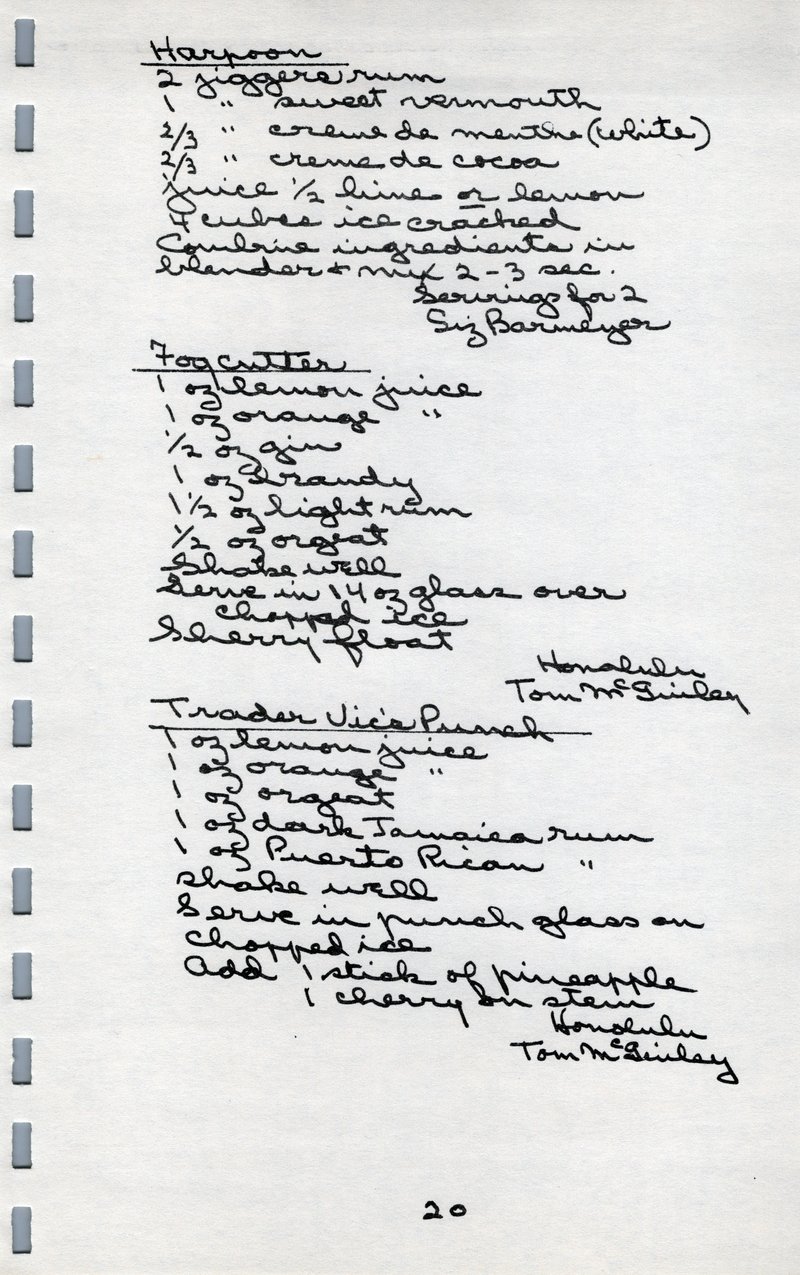 Harpoon
2 jiggers rum
1 " sweet vermouth
2/3 " creme de menthe (white)
2/3 " creme de cocoa
juice 1/2 lime or lemon
7 cubes ice cracked
Combine ingredients in
blender + mix 2-3 sec.
Servings for 2
Siz Barmeyer
Fogcutter
1 oz lemon juice
1 oz orange "
1/2 oz gin
1 oz brandy
1 1/2 oz light rum
1/2 oz orgeat
Shake well
Serve in 14 oz glass over
chopped ice
Sherry float
Honolulu
Tom McGinley
Trader Vic's Punch
1 oz lemon juice
1 oz orange "
1 oz orgeat
1 oz dark Jamaica rum
1 oz Puerto Rican "
shake well
Serve in punch glass on
chopped ice
Add 1 stick of pineapple
1 cherry on stem
Honolulu
Tom McGinley
20